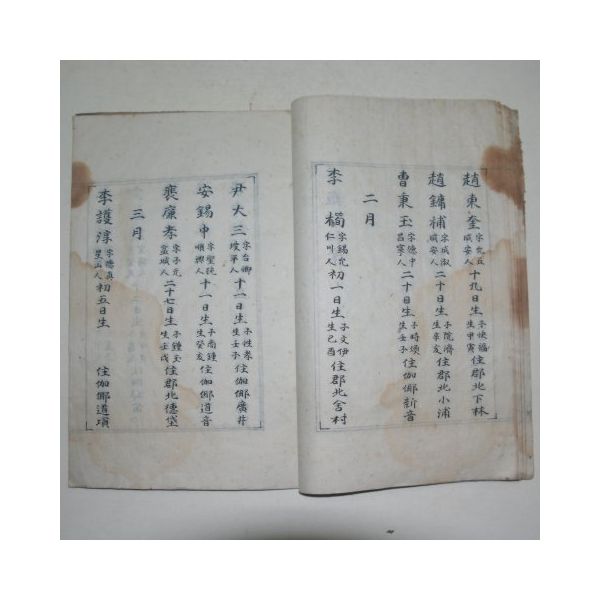 趙東奎 咸安人 十九日生 生甲寅 住郡北下林
趙鏞補 字成淑 咸安人 二十日生 生辛亥 住郡北小浦
曺秉玉 字德中 昌寧人 二十日生 子時煩 生壬子 住伽倻新音
二月
李 馥 字錫允 仁川人 初一日生 子文伊 生己酉 住郡北舍村
尹大三 字台卿 坡平人 十一日生 子性孝 生壬子 住伽倻廣井
安錫中 順興人 十一日生 子甬鍾 生癸亥 住伽倻道音
裵廉孝 字子允 盆城人 二十七日生 子鍾玉 生壬戌 住郡北德垈
三月
李護淳 字德眞 星山人 初五日生 住伽倻道項